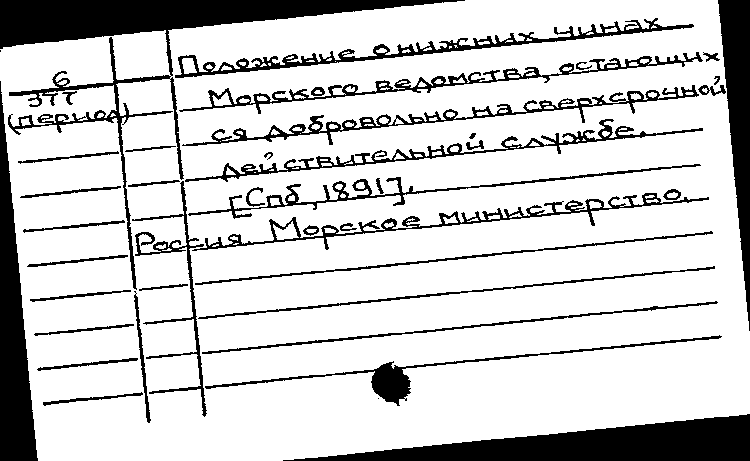 6
377
(период)
Положение о нижних чинах
Морского ведомства, остающих
ся добровольно на сверхсрочной
действительной службе.
[Спб, 1891].
Россия. Морское министерство.